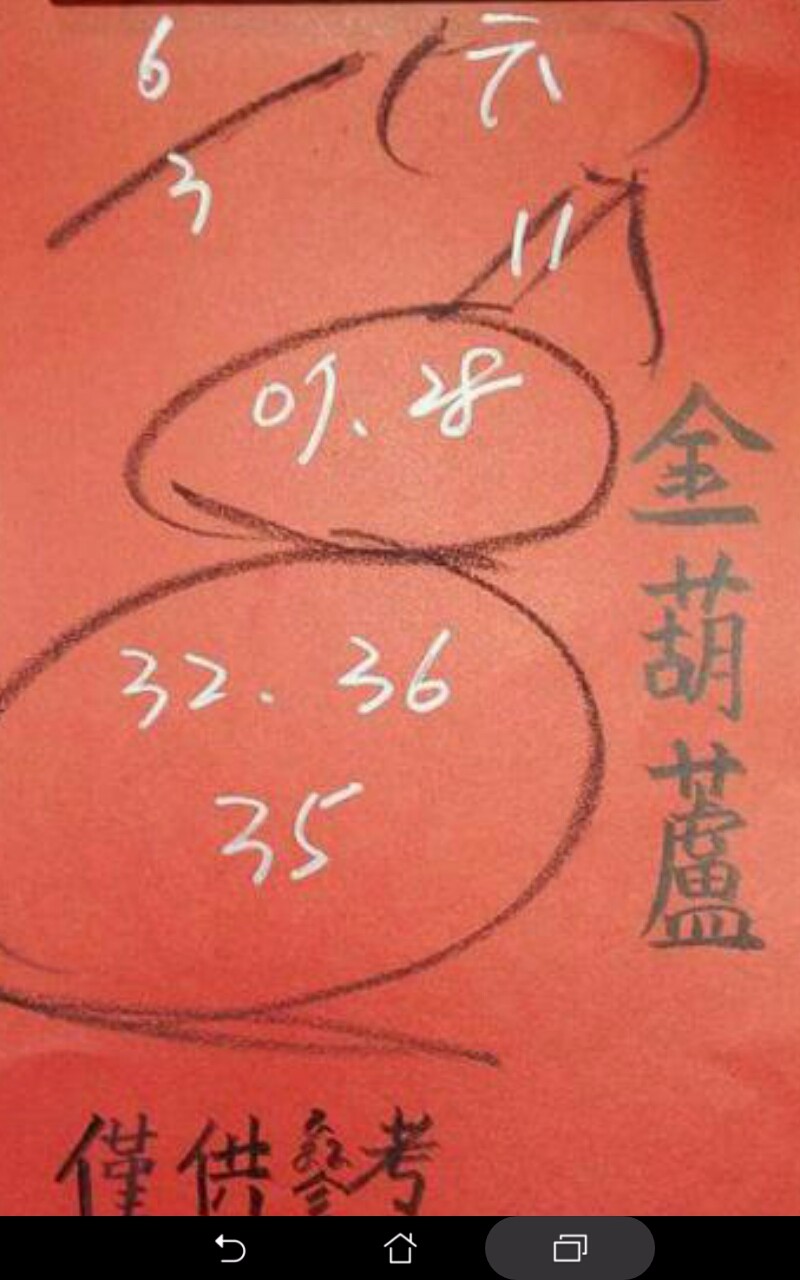 6
(六)
3
11
28
32. 36
35
金葫蘆
僅供參考